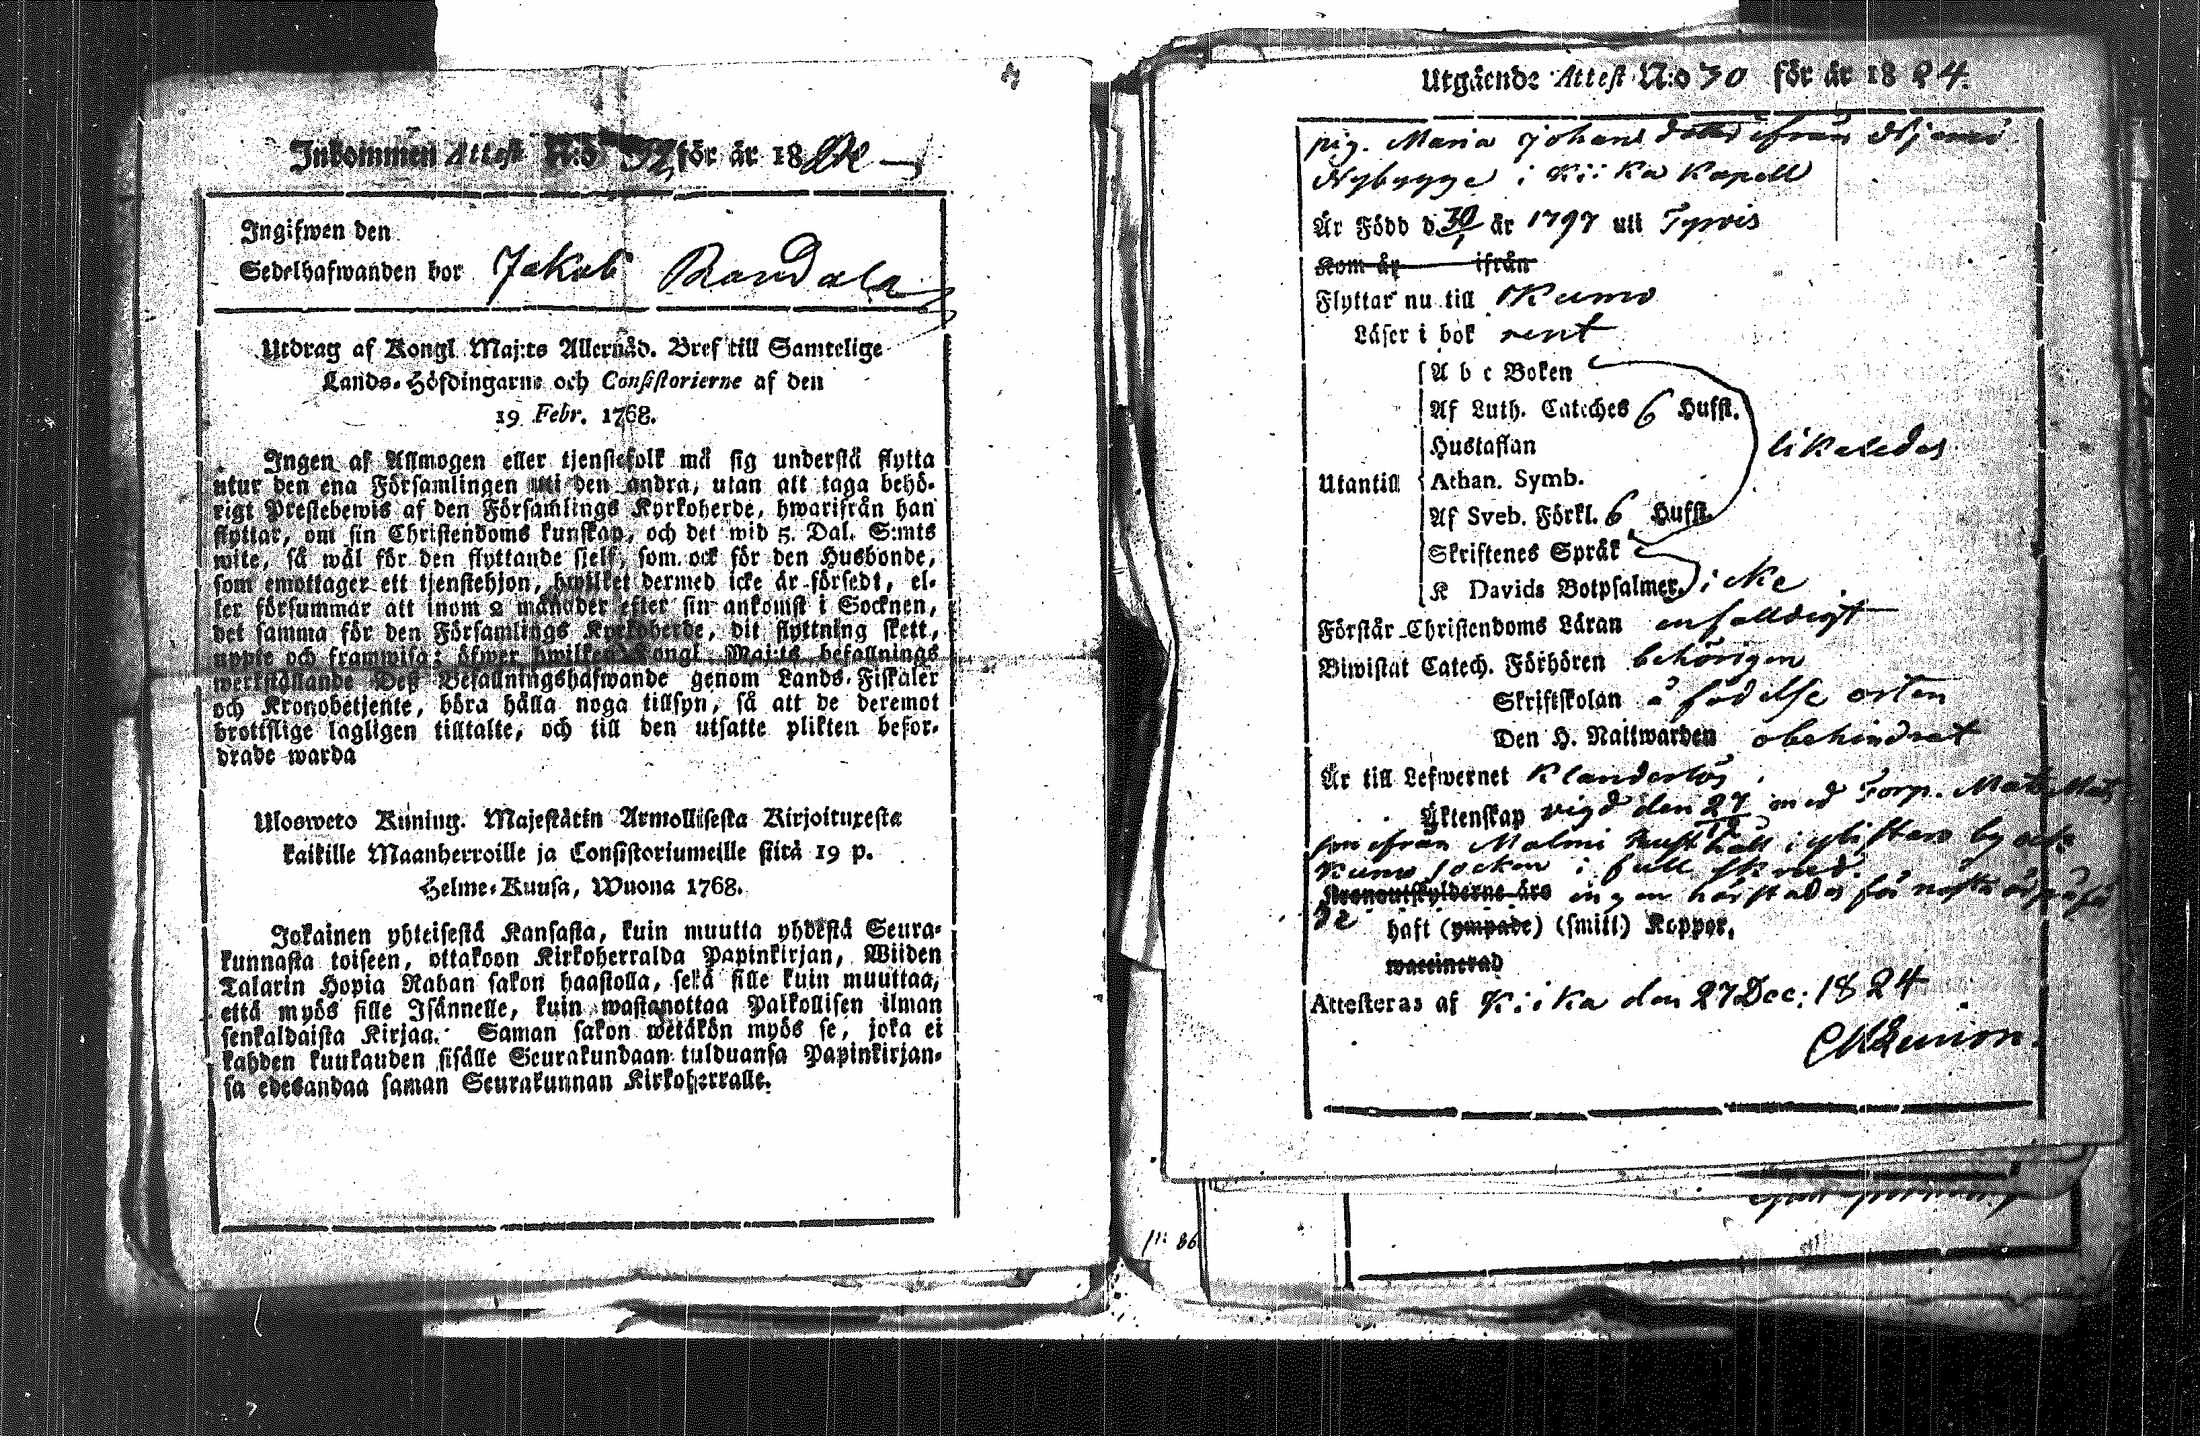 Inkommen Attest N:o 32 för år 18
Ingifwen den
Sedelhafwanden bor Jakob
Utdrag af Kongl Maj:ts Allernåd. Bref till Samtelige
Lands-Höfdingarne och Consistorierne af den
19 Febr. 1768.
Ingen af Allmogen eller tjenstefolk må sig understå flytta
utur den ena Församlingen uti den andra, utan att taga behö-
rigt Prestebewis af den Församlings Kyrkoherde, hwarifrån han
flyttar, om sin Christendoms kunskap, och det wid 5. Dal. S:mts
wite, så wäl för den flyttande sjelf, som ock för den Husbonde,
som emottager ett tjenstehjon, hwilket dermed icke är försedt, el-
ler försummar att inom 2 månader efter sin ankomst i Socknen,
det samma för den Församlings Kyrkoherde, dit flyttning skett,
uppte och framwisa; öfwer hwilken Kongl. Maj:ts befallnings
werkställande Deß Befallningshafwande genom Lands-Fiskaler
och Kronobetjente, böra hålla noga tillsyn, så att de deremot
brottslige lagligen tilltalte, och till den utsatte plikten befor-
drade warda
Ulosweto Kuning. Majestätin Armollisesta Kirjoituxesta
kaikille Maanherroille ja Consistoriumeille siitä 19 p.
Helme-Kuusa, Wuona 1768.
Jokainen yhteisestä Kansasta, kuin muutta yhdestä Seura-
kunnasta toiseen, ottakoon Kirkoherralda Papinkirjan, Wiiden
Talarin Hopia Rahan sakon haastolla, sekä sille kuin muuttaa,
että myös sille Isännelle, kuin wastanottaa Palkollisen ilman
senkaldaista Kirjaa. Saman sakon wetäkön myös se, joka ei
kahden kuukauden sisälle Seurakundaan tulduansa Papinkirjan-
sa edesandaa saman Seurakunnan Kirkoherralle.
Utgående Attest N:o 30 för år 1824.
pig. Maria Johans dotter ifrån
Nybygge i Kiika Kapell
Är Född d 30/1 år 1797 uti Tyrvis
Kom år ifrån
Flyttar nu till Kumo
Läser i bok rent
A b c Boken
Af Luth. Cateches 6 Hufst.
Hustaflan likaledes
Utantill Athan. Symb.
Af Sveb. Förkl. 6 Hufst.
Skriftenes Språk
K Davids Botpsalmer icke
Förstår Christendoms Läran enfalldigt
Biwistat Catech. Förhören behörigen
Skriftskolan å födelse orten
Den H. Nattwarden obehindrat
Är till Lefwernet Klanderlös
Äktenskap vigd den 27/12 med Torp. Mats Mats
son ifrån Malmi i by och
Kumo socken i full
Kronoutskylderne års ingen härstädes för nästa år
haft (ympade) (smitt) Koppor,
waccinerad
Attesteras af Kiika den 27 Dec: 1824
p: 86